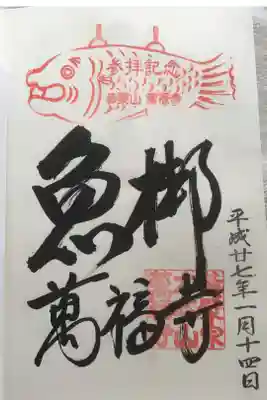 参拝記念
黄檗山 萬福寺
魚梆
萬福寺
平成廿七年一月十四日